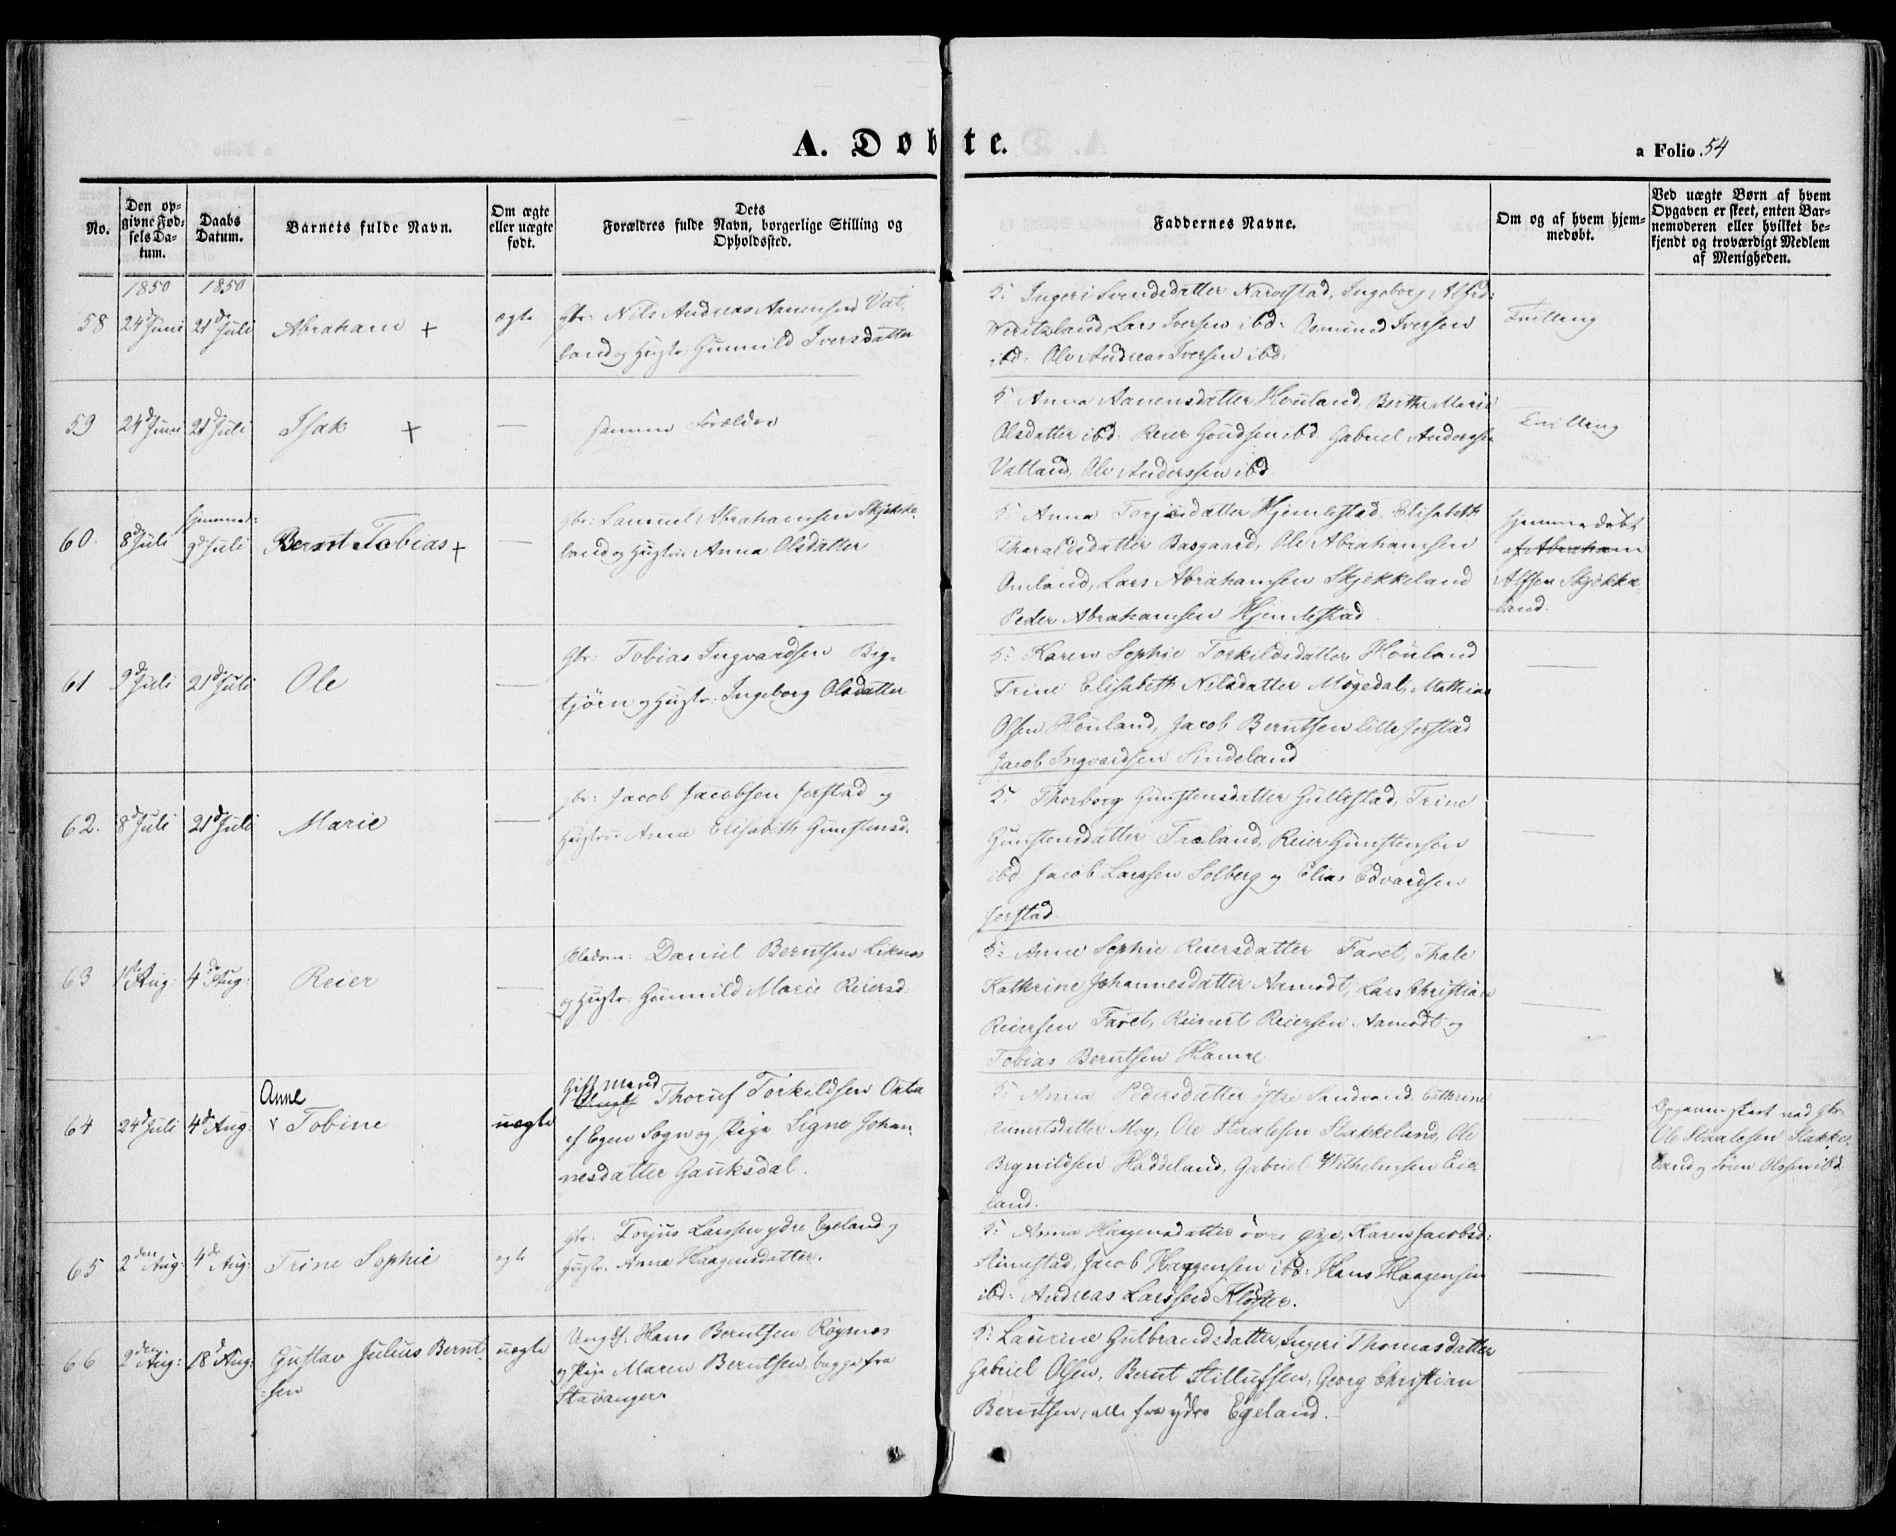 A. Døbte.
a Folio 54
No.
Den op-
givne Fød-
sels Da-
tum.
Daabs
Datum.
Barnets fulde Navn.
Om ægte
eller uægte
født.
Dets
Forældres fulde Navn, borgerlige Stilling og
Opholdssted.
Faddernes Navne.
Om og af hvem hjem-
medøbt.
Ved uægte Børn af hvem
Opgaven er skeet, enten Bar-
nemoderen eller hvilket be-
kjendt og troværdigt Medlem
af Menigheden.
1850 1850
58 24d Juni 21d Juli Abraham + ægte
Gbr: Nils Andreas Aanensen Vat-
land og Hustr: Gunnild Iversdatter
5: Ingeri Svendsdatter Narvestad, Ingeborg
Lars Iversen ibd: Osmund Iversen
ibd: Ole Andreas Iversen ibd:
Tvilling
59 24d Juni 21d Juli Isak + —
samme Forældre
5 Anna Aanensdatter Houland, Berthe Marie
Olsdatter ibd: Reier Goudsen ibd. Gabriel Anderssen
Vatland, Ole Anderssen ibd
Tvilling
60. 8d Juli hjemmed:
9d Juli Bernt Tobias + —
Gbr: Samuel Abrahamsen Skjekke-
land og Hustr: Anna Olsdatter
5: Anna Torjusdatter Hjemlestad, Elisabeth
Tharaldsdatter Basgaard, Ole Abrahamsen
Omland, Lars Abrahamsen Skjekkeland
Peder Abrahamsen Hjemlestad
hjemmedøbt
af Abraham
Alfsen Skjekke-
land.
61 9d Juli 21d Juli Ole —
Gbr: Tobias Ingvardsen Big-
tjørn og Hustr: Ingeborg Olsdatter
5: Karen Sophie Torkildsdatter Houland
Trine Elisabeth Nilsdatter Møgedal, Mathias
Olsen Houland, Jacob Berntsen lille Jerstad
Jacob Ingvardsen Sindeland
—
62. 8d Juli 21d Juli Marie —
Gbr: Jacob Jacobsen Jerstad og
Hustr: Anne Elisabeth Gunstensd.
5: Thorborg Gunstensdatter Gullestad, Trine
Gunstensdatter Træland, Reier Gunstensen
ibd Jacob Larssen Solberg og Elias Edvardsen
Jerstad.
—
63 1ste Aug: 4de Aug: Reier —
Daniel Berntsen Liknes
og Hustr: Gunnild Marie Reiersd.
5: Anne Sophie Reiersdatter Faret, Thale
Kathrine Johannesdatter Aamodt, Lars Christian
Reiersen Faret, Reinert Reiersen Aamodt og
Tobias Berntsen Hamre
—
64 24d Juli 4d Aug: Anne
Tobine uægte
Gift Mand
Thoruf Torkildsen
af Egen Sogn og Pige Signe Johan-
nesdatter Gauksdal.
5: Anna Pedersdatter østre Sandvand, Cathrine
Moy, Ole Staalesen Stakkeland, Ole
Brynildsen Haddeland, Gabriel Wilhelmsen Eie-
land.
Opgaven skeet ved Gbr:
Ole Staalesen Stakke-
land og Søren Olssen ibd.
65 2den Aug: 4de Aug: Trine Sophie ægte
Gbr: Torjus Larssen ydre Egeland og
Hustr: Anna Haagensdatter.
5: Anna Haagensdatter øvre Øye, Karen Jacobsd:
Stimestad, Jacob Haagensen ibd: Hans Haagensen
ibd: Andreas Larssen Kloster.
—
66 2den Aug: 18d Aug: Gustav Julius Bernt-
sen uægte
Ungk: Hans Berntsen Røgnes
og Pige Maren Berntsen, begge fra
Stavanger.
5: Laurine Gulbrandsdatter, Ingeri Thomasdatter
Gabriel Olsen, Bernt Stillufsen, Georg Christian
Berntsen, alle fra ydre Egeland.
—